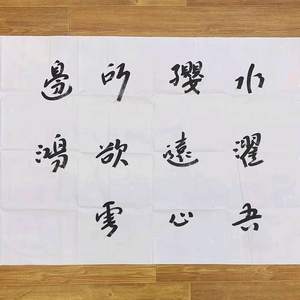 水濯吾
纓遠心
所欲雲
邊鴻